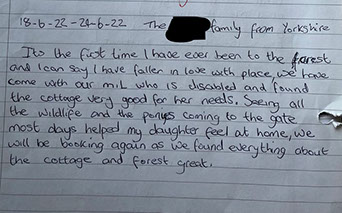 18-6-22-24-6-22 The family from Yorkshire
Its the first time I have ever been to the forest
and I can say I have fallen in love with place, we have
come with our m.i.L who is disabled and found
the cottage very good for her needs. Seeing all
the wildlife and the ponys coming to the gate
most days helped my daughter feel at home, we
will be booking again as we found everything about
the cottage and forest great.